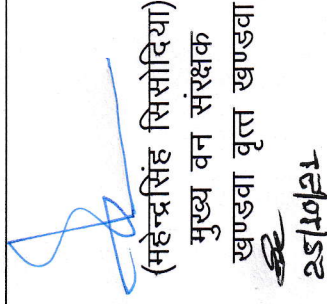 (महेन्द्रसिंह सिसोदिया)
मुख्य वन संरक्षक
खण्डवा वृत्त खण्डवा